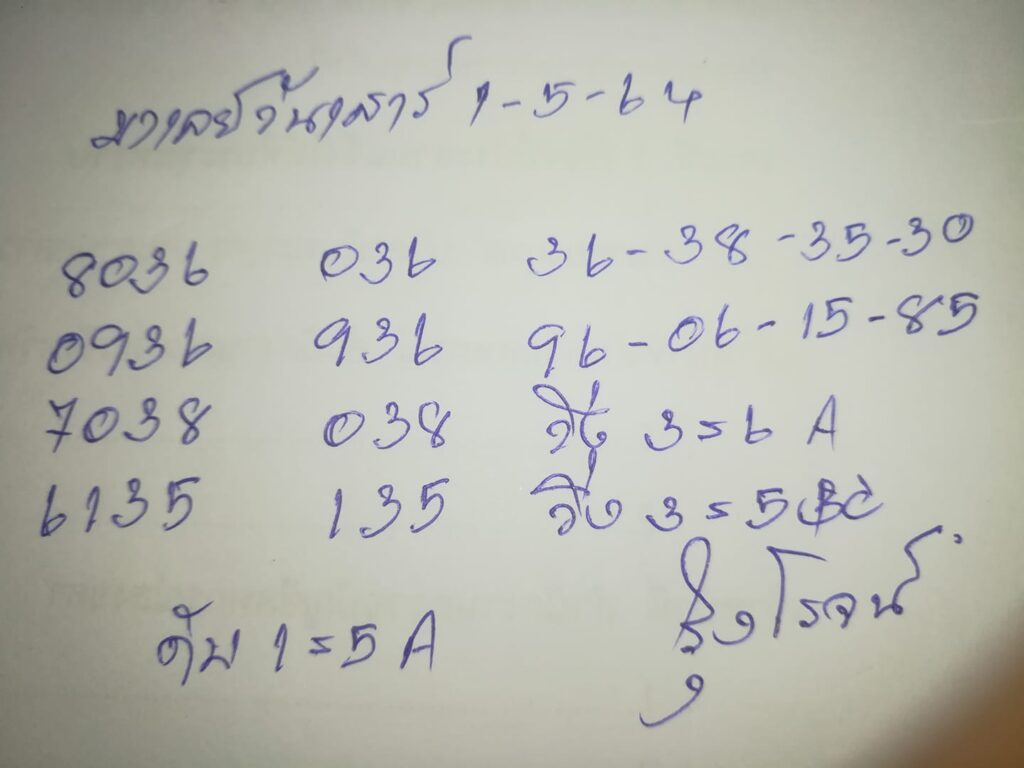 มาเลย์วันเสาร์ 1-5-64
8036 036 36-38-35-30
0936 936 96-06-15-85
7038 038 วิ่ง 3=6 A
6135 135 วิ่ง 3=5 BC
ดับ 1=5 A
รุ่งโรจน์